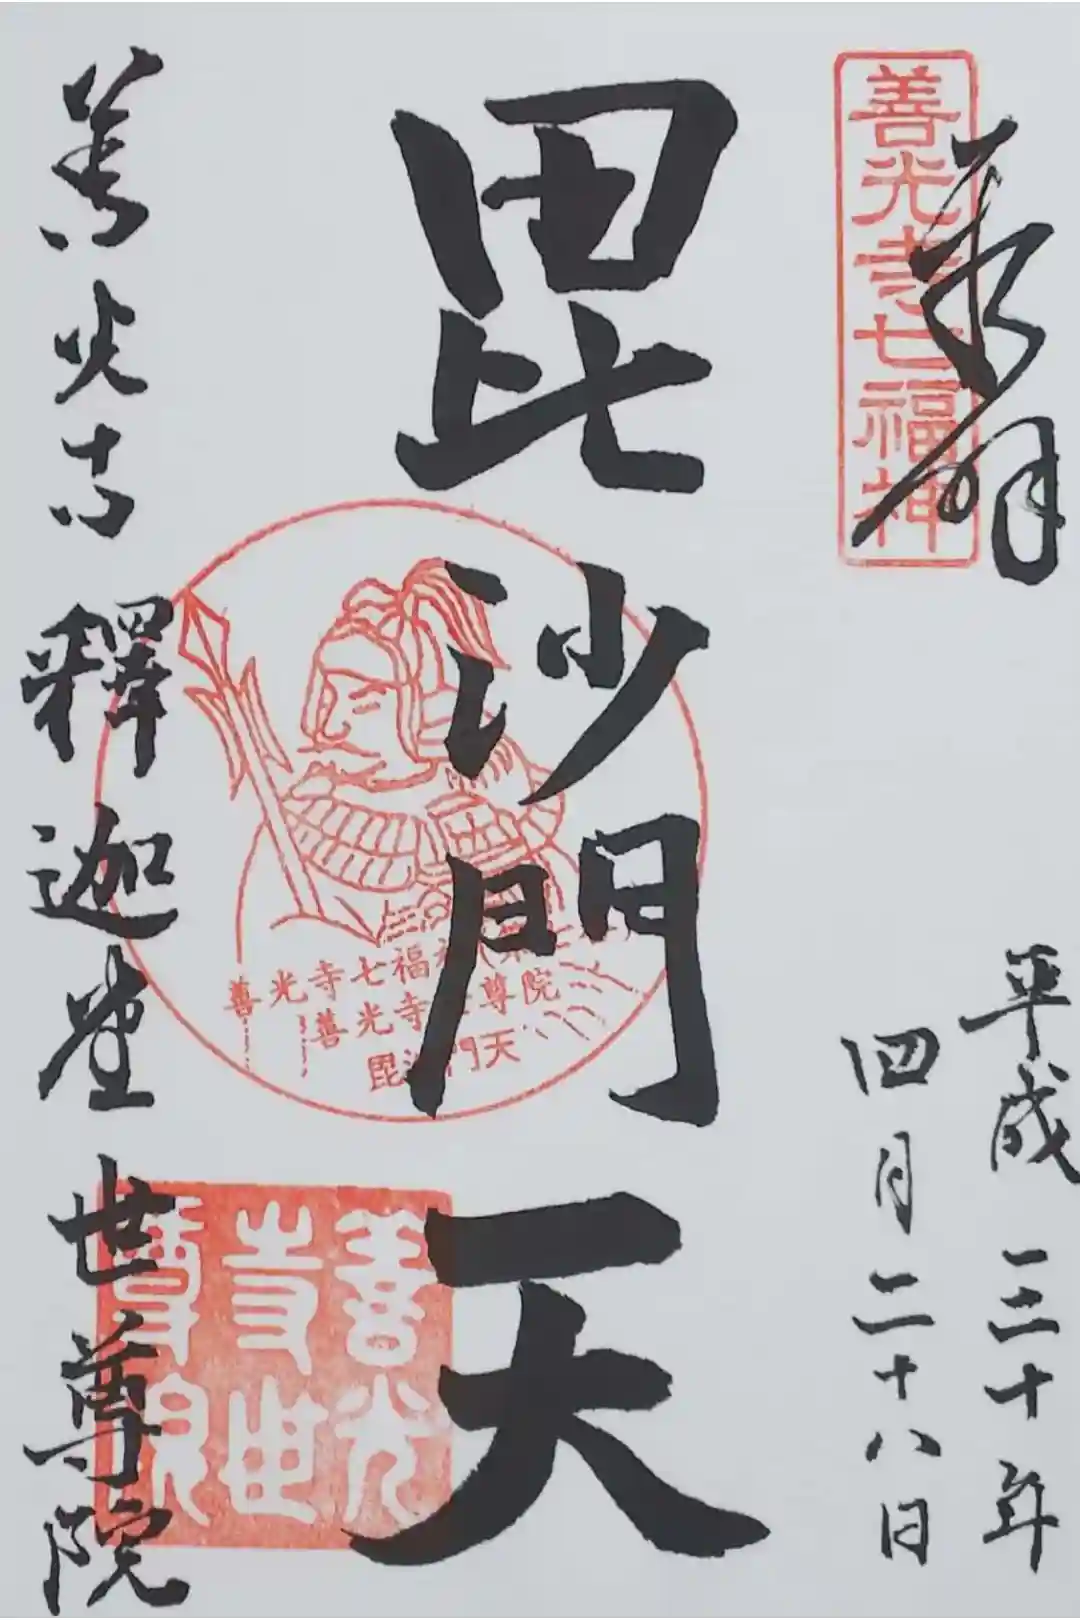 奉拝
善光寺七福神
平成三十年
四月二十八日
毘沙門天
善光寺七福神
善光寺世尊院
毘沙門天
善光寺世尊院
善光寺 釋迦堂 世尊院